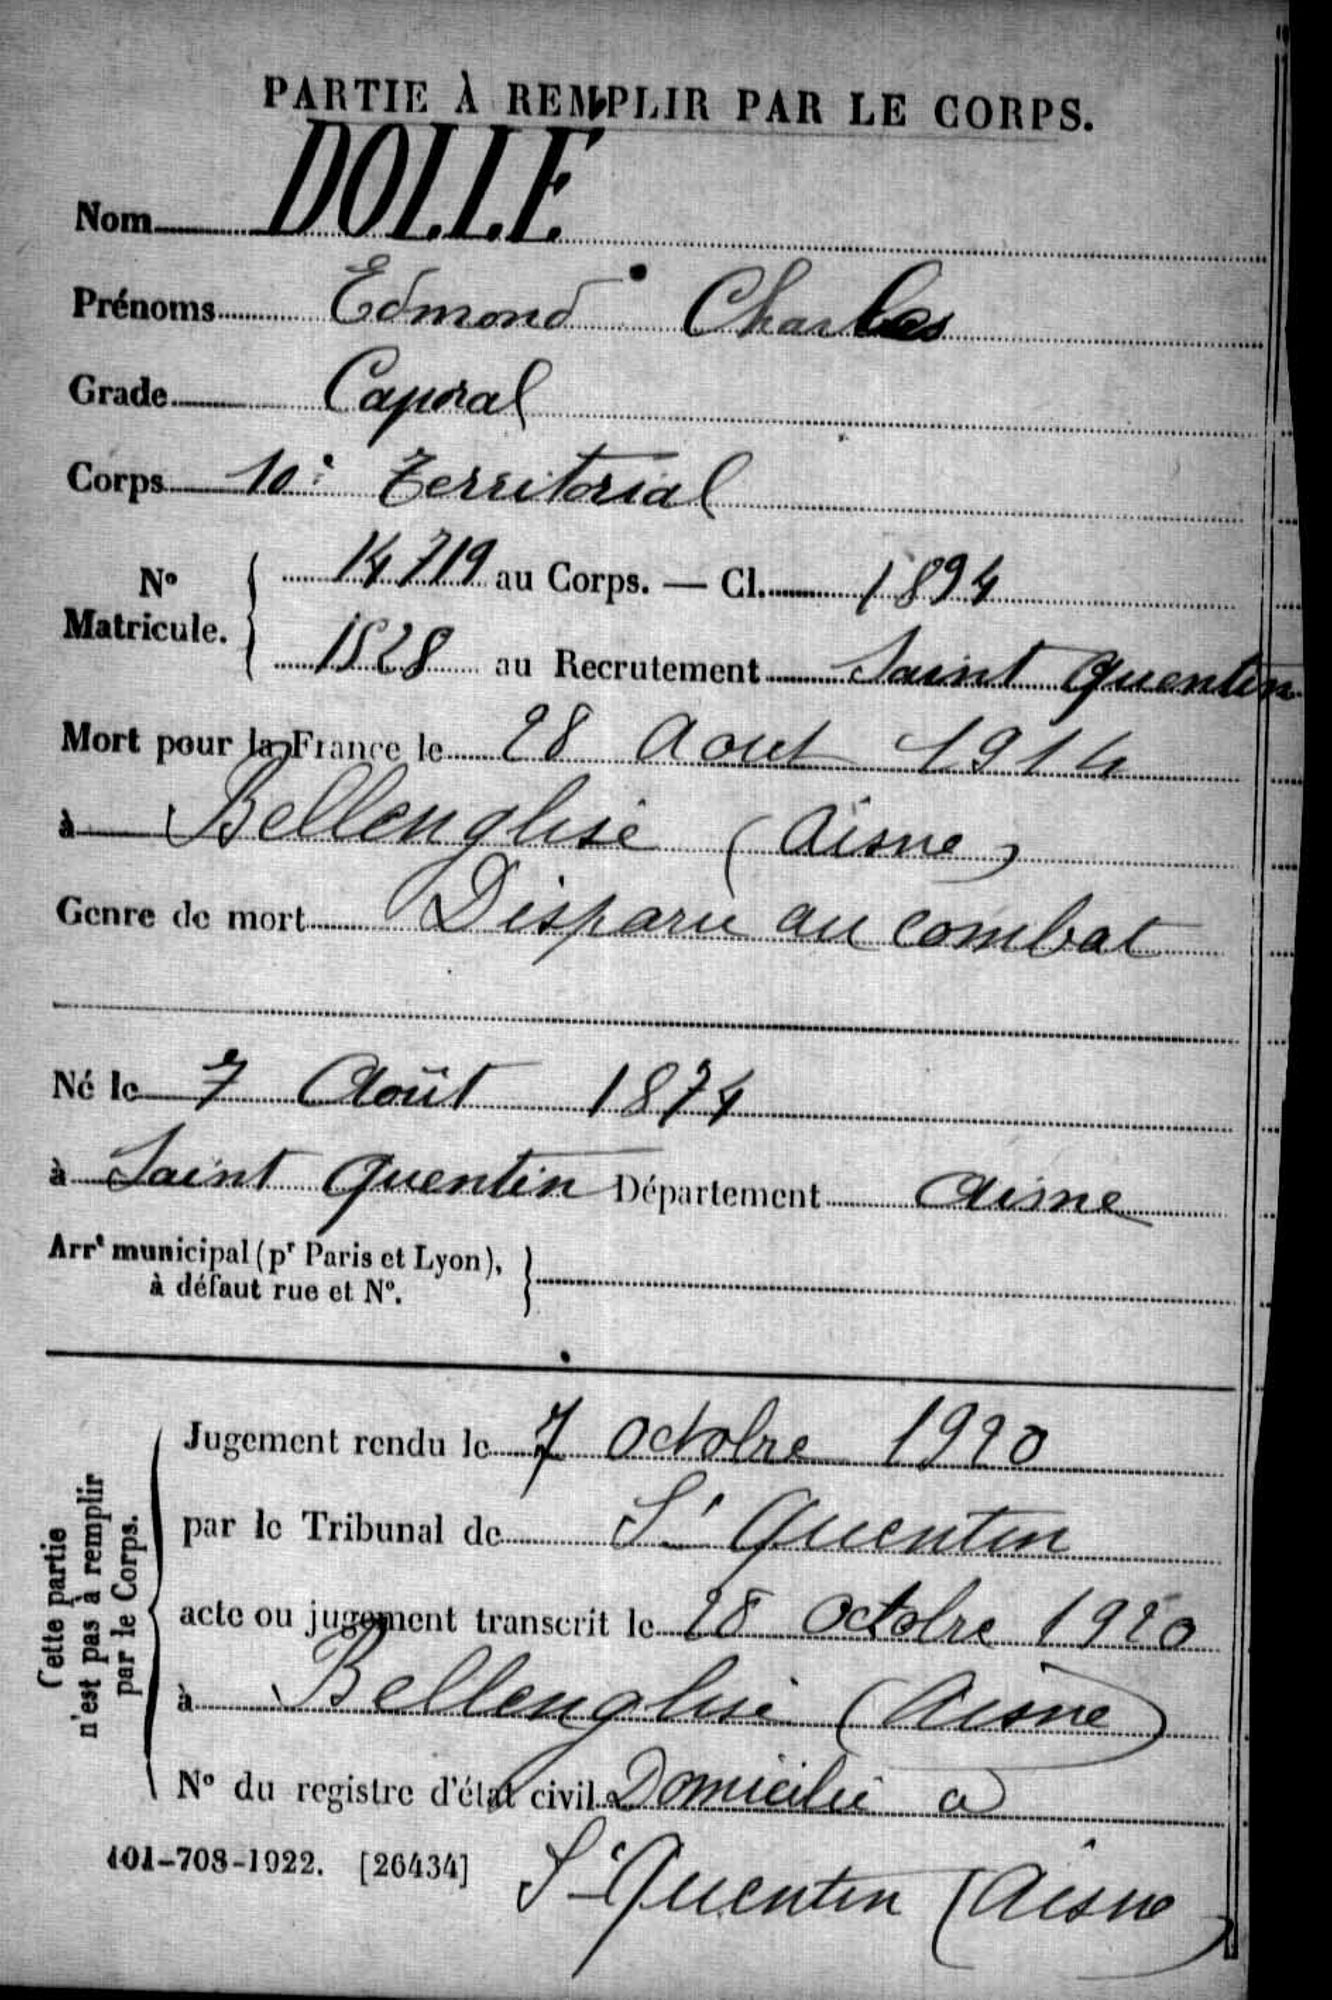 PARTIE À REMPLIR PAR LE CORPS.
Nom DOLLÉ
Prénoms Edmond Charles
Grade Caporal
Corps 10e Territorial
No Matricule. 14719 au Corps. — Cl. 1894
1528 au Recrutement Saint Quentin
Mort pour la France le 28 Aout 1914
à Bellenglise (Aisne)
Genre de mort Disparu au combat
Né le 7 Août 1874
à Saint Quentin Département Aisne
Arrt municipal (pr Paris et Lyon),
à défaut rue et No.
Cette partie
n'est pas à remplir
par le Corps.
Jugement rendu le 7 octobre 1920
par le Tribunal de St Quentin
acte ou jugement transcrit le 28 Octobre 1920
à Bellenglise (Aisne)
No du registre d'état civil Domicilié a
St Quentin (Aisne)
101-708-1922. [26434]